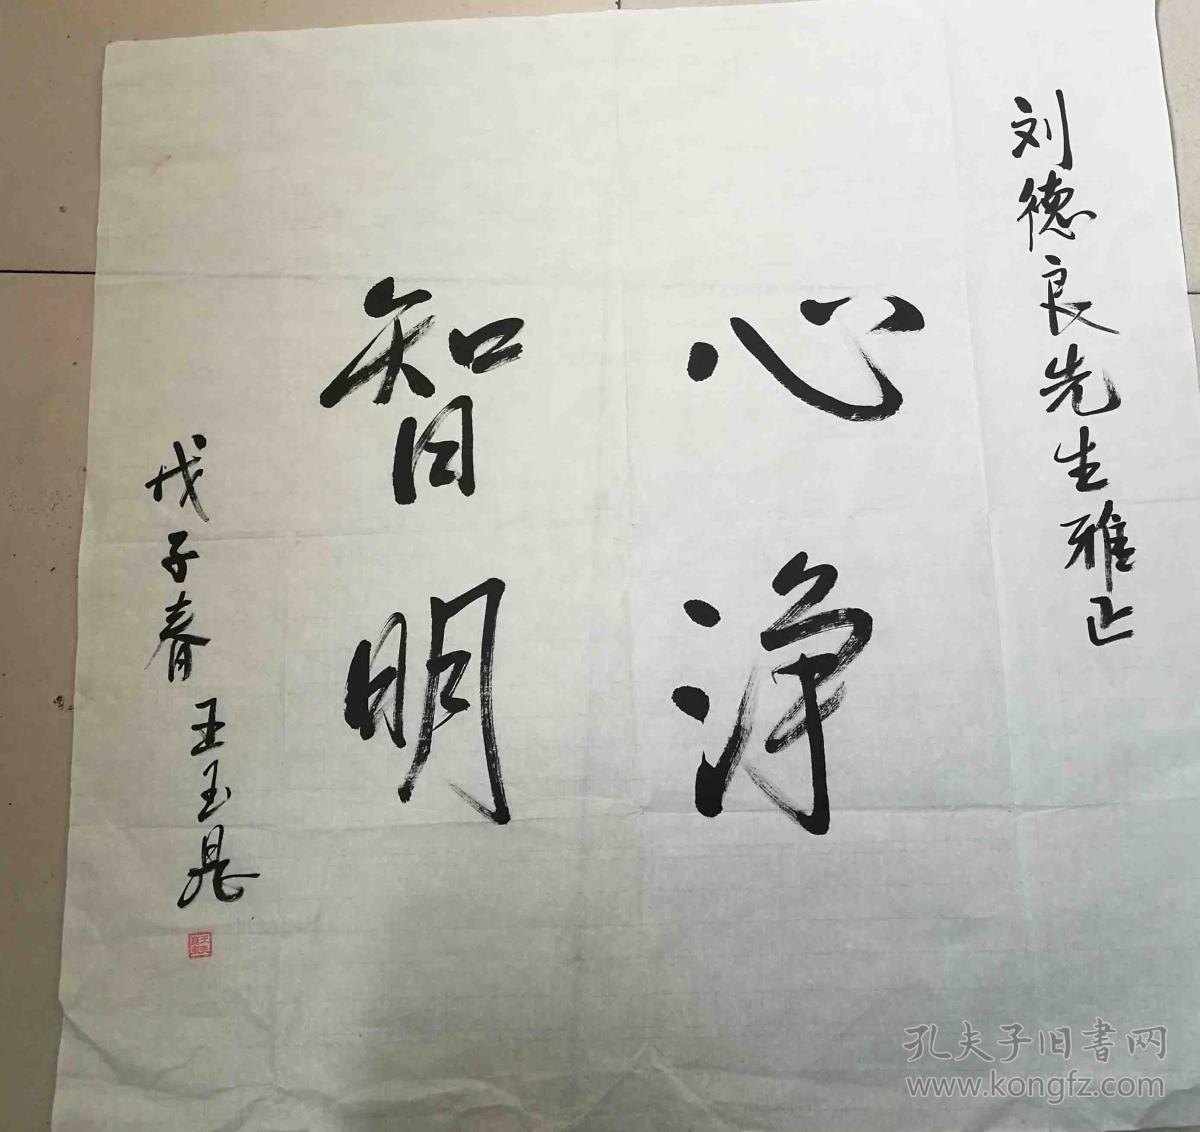 刘德良先生雅正
心净
智明
戊子春 王玉晁
孔夫子旧书网
www.kongfz.com